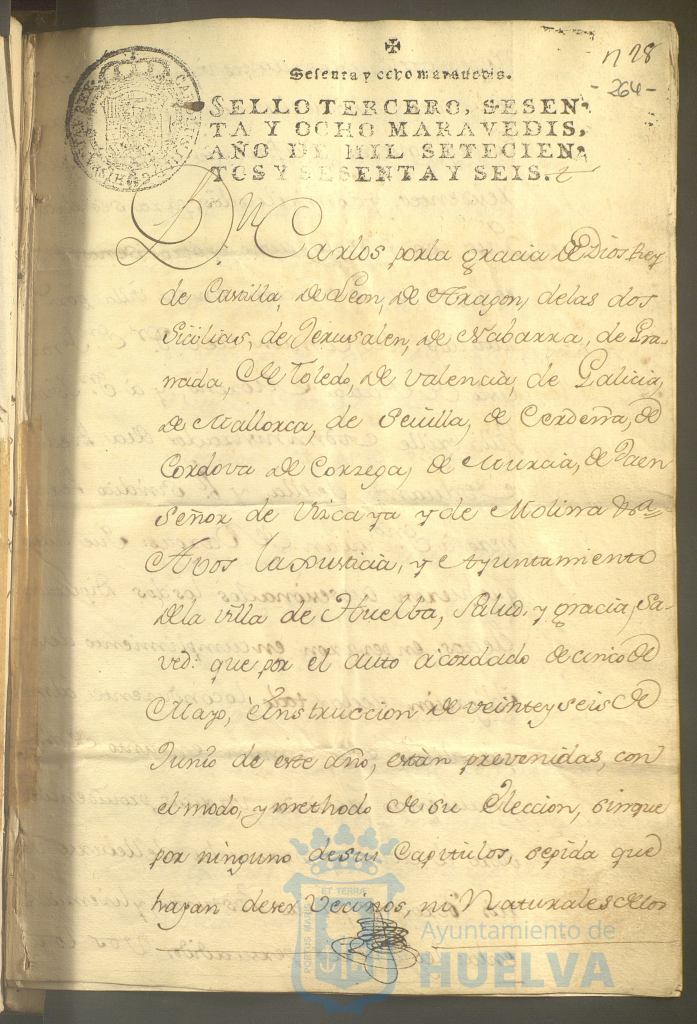 n 28
- 264 -
Sesenta y ocho maravedis.
SELLO TERCERO, SESEN-
TA Y OCHO MARAVEDIS,
AÑO DE MIL SETECIEN-
TOS Y SESENTA Y SEIS.
Dn Carlos por la gracia de Dios Rey
de Castilla, de Leon, de Aragon, delas dos
Sicilias, de Jerusalen, de Nabarra, de Gra-
nada, de Toledo, de Valencia, de Galicia,
de Mallorca, de Seuilla, de Cerdeña, de
Cordova de Corzega, de Murcia, de Jaen
Señor de Vizcaya y de Molina &a
Avos la Justicia, y Ayuntamiento
dela villa de Huelba, Salud y gracia, Sa-
ved: que por el auto acordado de cinco de
Mayo, é Instruccion de veinte y seis de
Junio de este año, están prevenidas, con
el modo, y methodo de su Eleccion, sinque
por ninguno de sus Capitulos, se pida que
hayan deser Vecinos, ni Naturales de los
PORTUS MARIS
ET TERRA
Ayuntamiento de
HUELVA